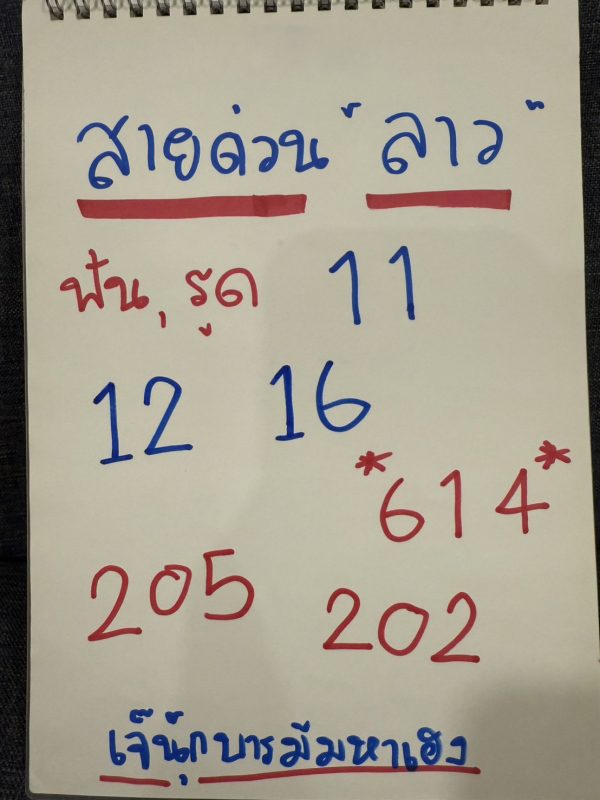 สายด่วน "ลาว"
ฟัน, รูด 11
12 16
*614*
205 202
เจ๊นุ๊กบารมีมหาเฮง